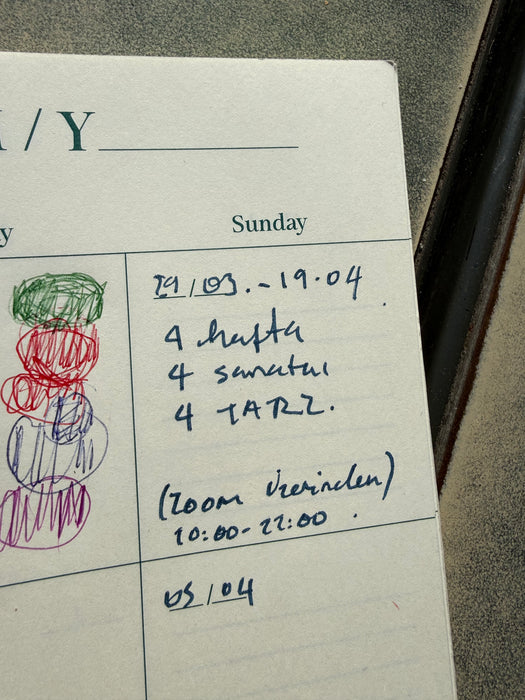 / Y
Sunday
29/03.-19.04
4 hafta
4 sanatçı
4 TARZ.
(Zoom üzerinden)
20:00-22:00.
05/04